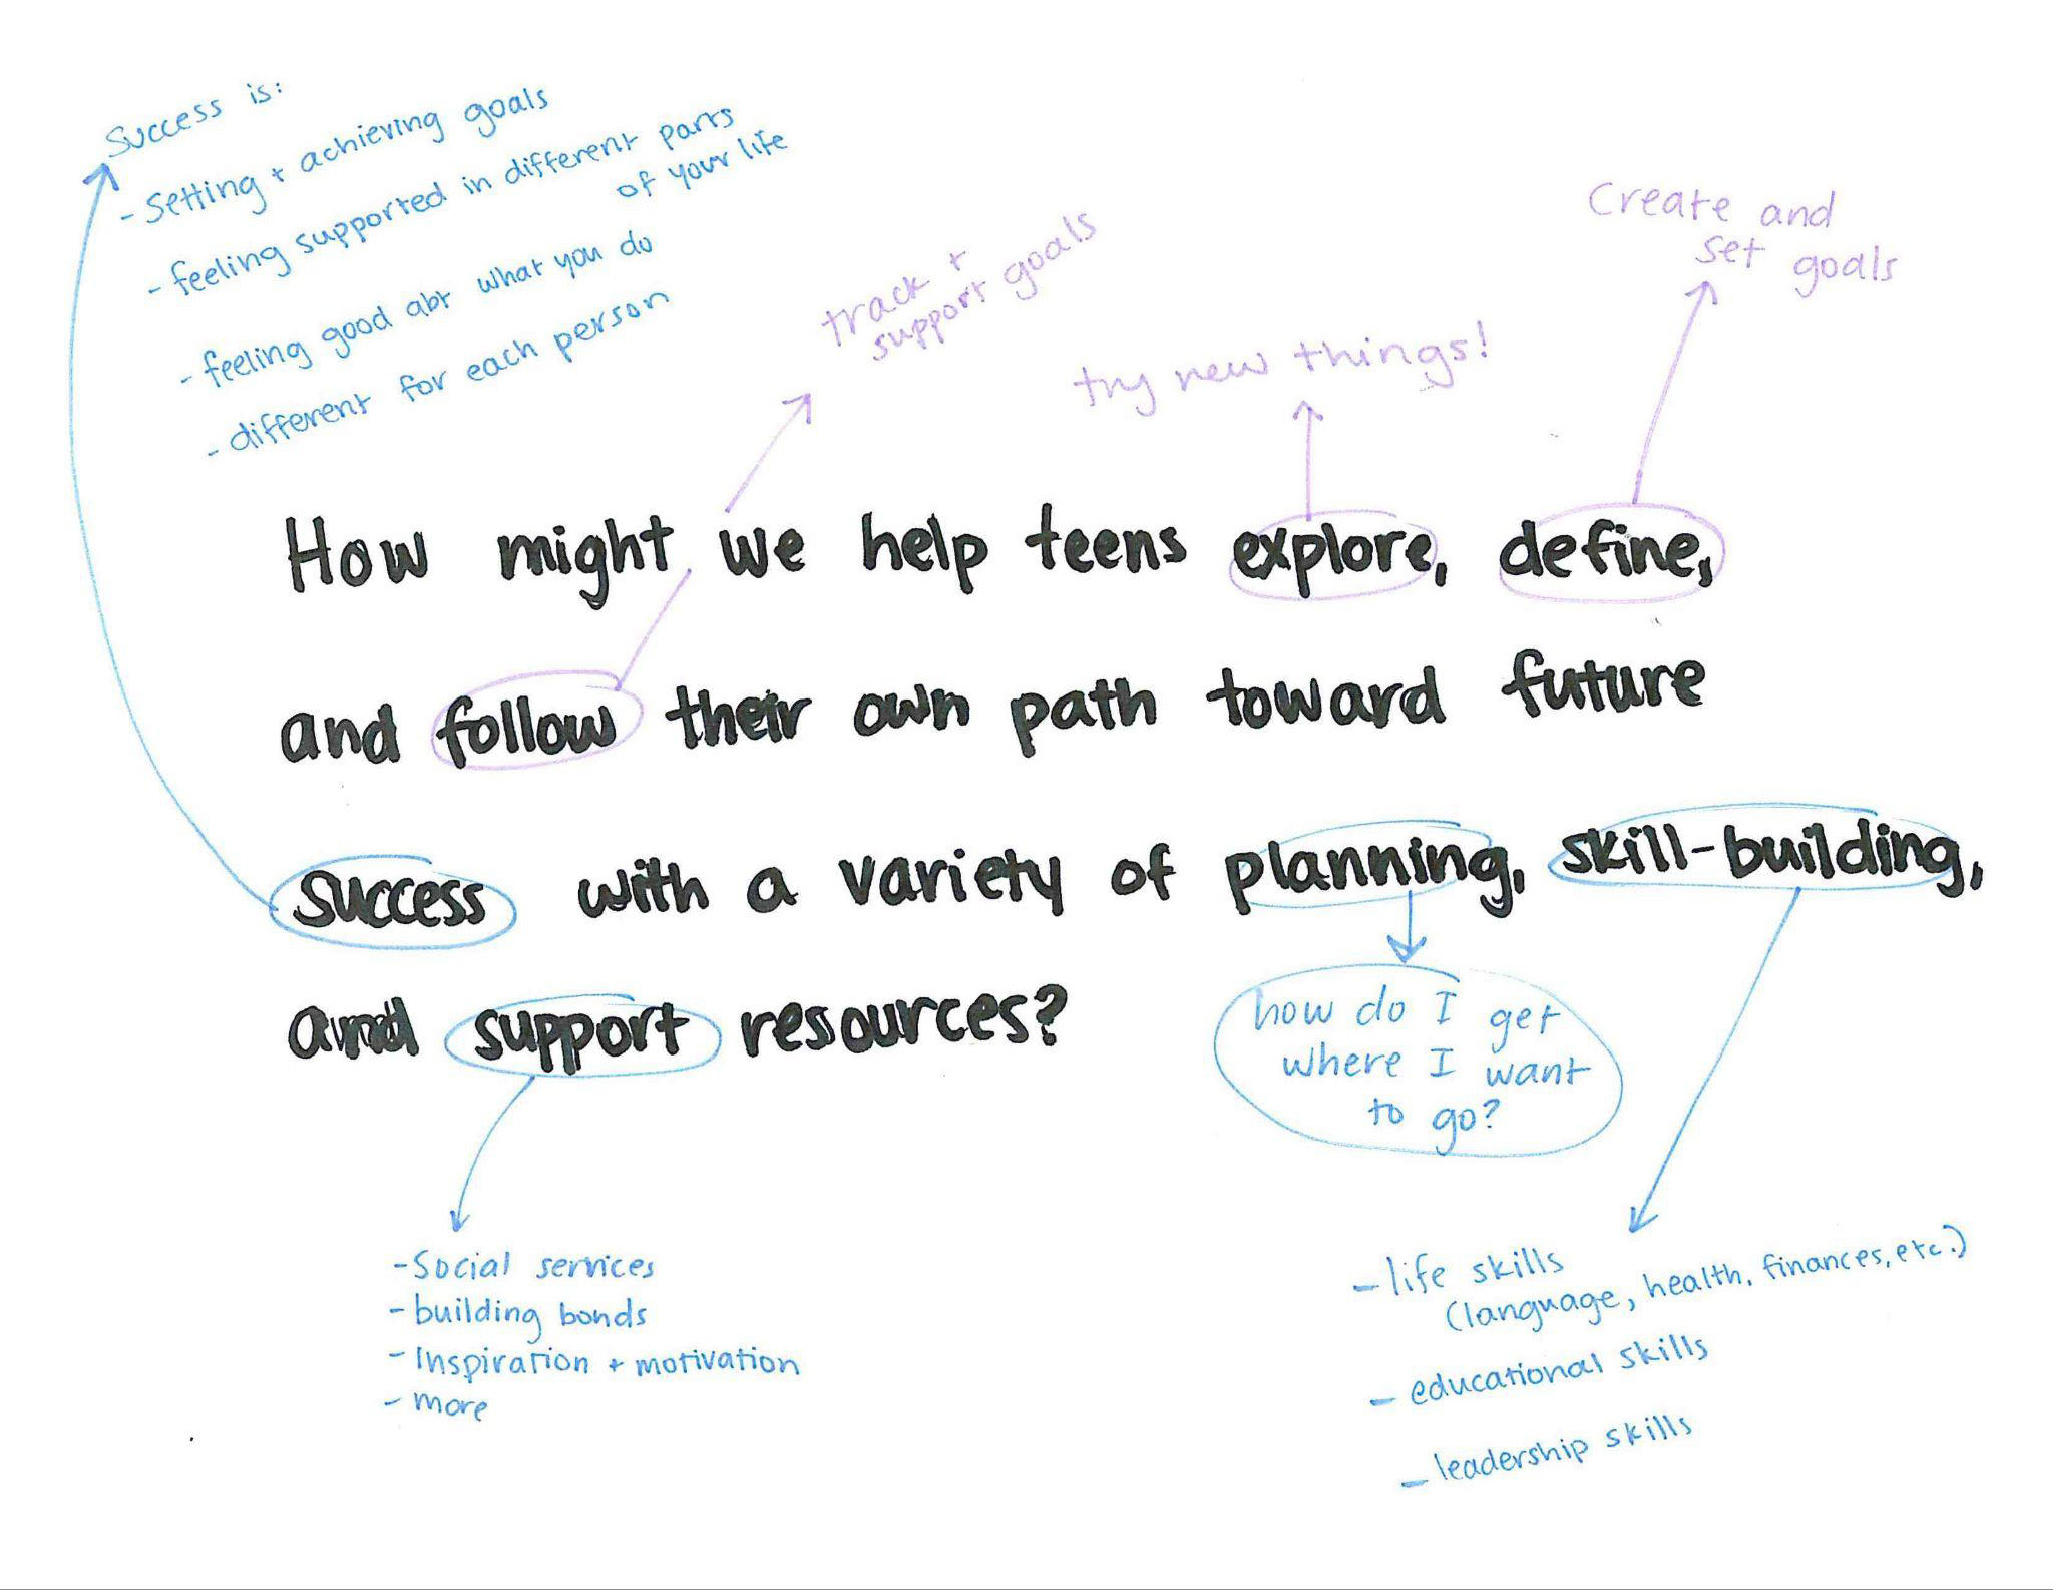 Success is:
- Setting + achieving goals
- feeling supported in different parts
of your life
- feeling good abt what you do
- different for each person
track +
support goals
try new things!
Create and
set goals
How might we help teens explore, define,
and follow their own path toward future
success with a variety of planning, skill-building,
and support resources?
how do I get
where I want
to go?
- Social services
- building bonds
- Inspiration + motivation
- more
- life skills
(language, health, finances, etc.)
- educational skills
- leadership skills